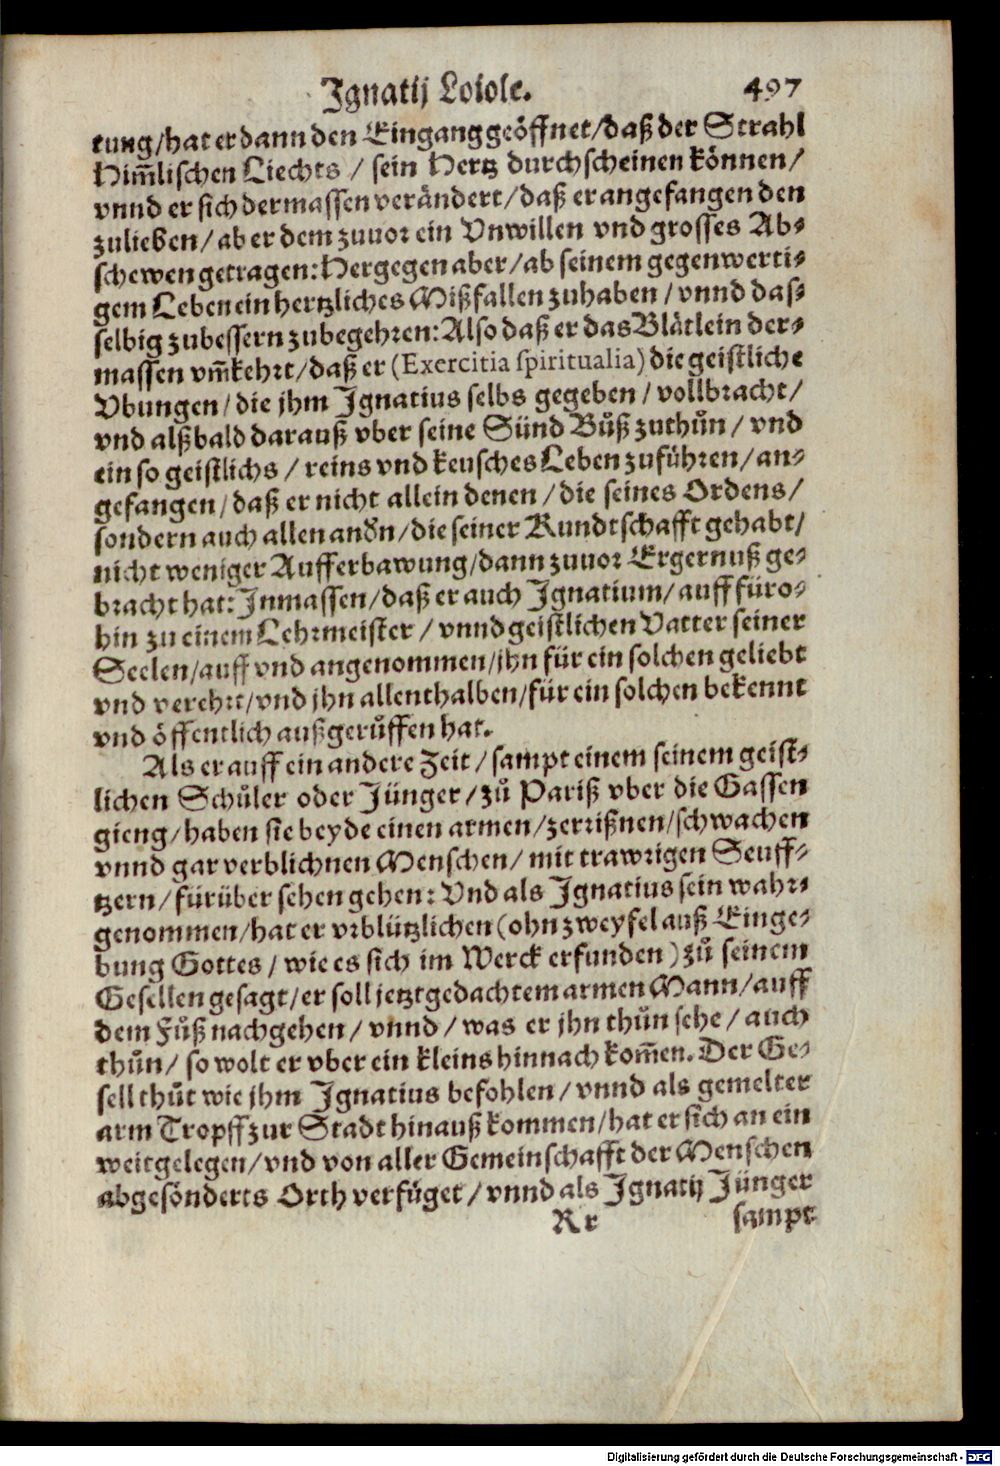 Ignatij Loiole. 497
tung/hat er dann den Eingang geöffnet/daß der Strahl
Him̃lischen Liechts / sein Hertz durchscheinen können/
vnnd er sich dermassen verändert/daß er angefangen den
zulieben/ab er dem zuuor ein Vnwillen vnd grosses Ab-
schewen getragen: Hergegen aber/ab seinem gegenwerti-
gem Leben ein hertzliches Mißfallen zuhaben / vnnd das-
selbig zubessern zubegehren: Also daß er das Blätlein der-
massen vm̃kehrt/daß er (Exercitia spiritualia) die geistliche
Vbungen/die jhm Ignatius selbs gegeben / vollbracht/
vnd alßbald darauß vber seine Sünd Bůß zuthůn / vnd
ein so geistlichs / reins vnd keusches Leben zuführen/an-
gefangen/daß er nicht allein denen / die seines Ordens/
sondern auch allen andn/die seiner Kundtschafft gehabt/
nicht weniger Aufferbawung/dann zuuor Ergernuß ge-
bracht hat: Inmassen/daß er auch Ignatium/auff füro-
hin zu einem Lehrmeister / vnnd geistlichen Vatter seiner
Seelen/auff vnd angenommen/jhn für ein solchen geliebt
vnd verehrt/vnd jhn allenthalben/für ein solchen bekennt
vnd öffentlich außgerůffen hat.
Als er auff ein andere Zeit / sampt einem seinem geist-
lichen Schůler oder Jünger/zů Pariß vber die Gassen
gieng/haben sie beyde einen armen/zerrißnen/schwachen
vnnd gar verblichnen Menschen/mit trawrigen Seuff-
tzern/fürüber sehen gehen: Vnd als Ignatius sein wahr-
genommen/hat er vrblützlichen (ohn zweyfel auß Einge-
bung Gottes / wie es sich im Werck erfunden) zů seinem
Gesellen gesagt/er soll jetztgedachtem armen Mann/auff
dem Fůß nachgehen / vnnd / was er jhn thůn sehe / auch
thůn/ so wolt er vber ein kleins hinnach kom̃en. Der Ge-
sell thůt wie jhm Ignatius befohlen / vnnd als gemelter
arm Tropff zur Stadt hinauß kommen/hat er sich an ein
weitgelegen/vnd von aller Gemeinschafft der Menschen
abgesönderts Orth verfüget/vnnd als Ignatij Jünger
Rr sampt
Digitalisierung gefördert durch die Deutsche Forschungsgemeinschaft - DFG